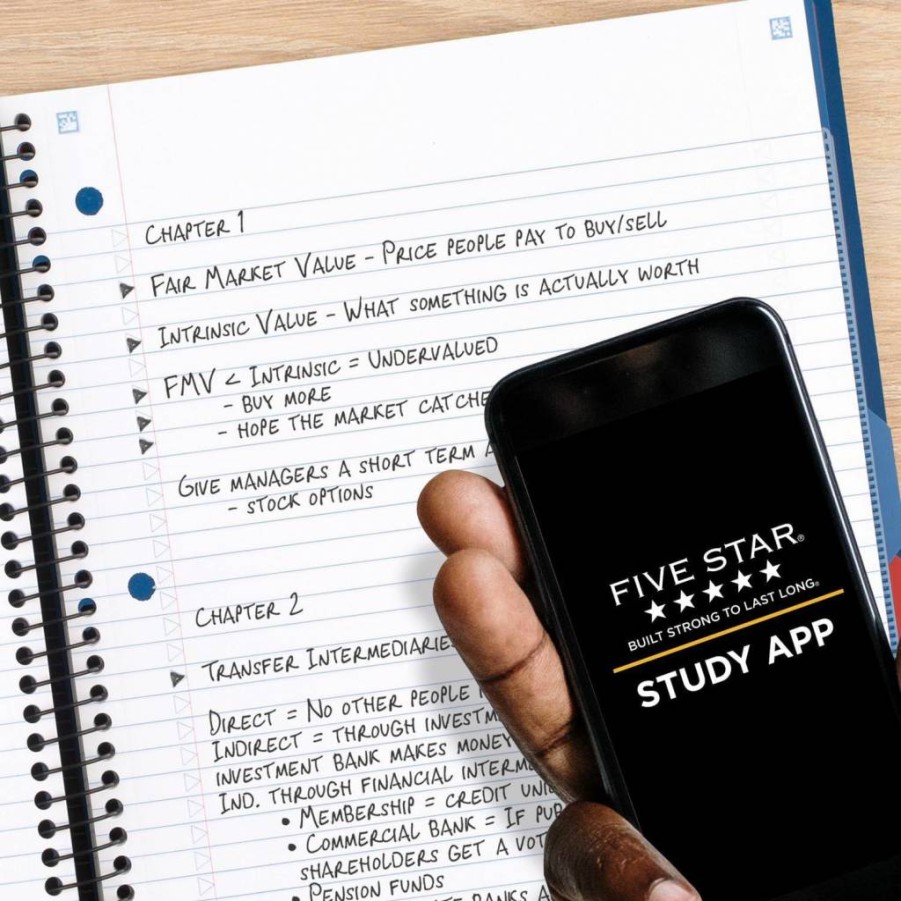 CHAPTER 1
FAIR MARKET VALUE - PRICE PEOPLE PAY TO BUY/SELL
INTRINSIC VALUE - WHAT SOMETHING IS ACTUALLY WORTH
FMV < INTRINSIC = UNDERVALUED
- BUY MORE
- HOPE THE MARKET CATCHE
GIVE MANAGERS A SHORT TERM
- STOCK OPTIONS
CHAPTER 2
TRANSFER INTERMEDIARIE
DIRECT = NO OTHER PEOPLE
INDIRECT = THROUGH INVESTM
INVESTMENT BANK MAKES MONEY
IND. THROUGH FINANCIAL INTERM
• MEMBERSHIP = CREDIT UNI
• COMMERCIAL BANK = IF PUB
SHAREHOLDERS GET A VOT
• PENSION FUNDS
BANKS A
FIVE STAR®
BUILT STRONG TO LAST LONG®
STUDY APP